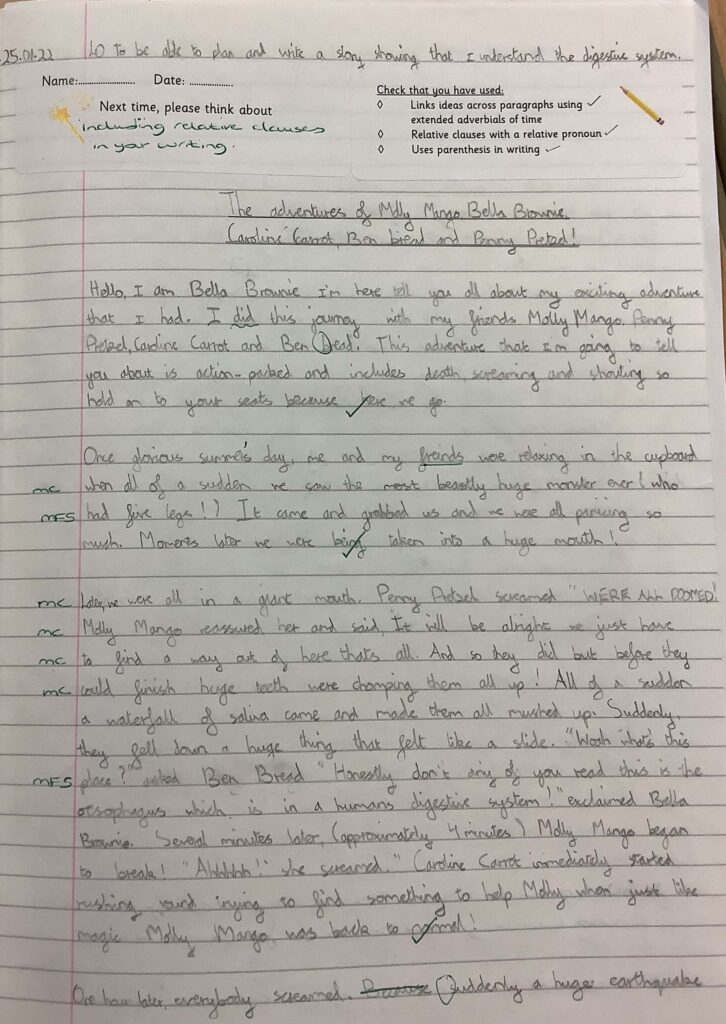 25.01.22 LO To be able to plan and write a story showing that I understand the digestive system.
Name:.................... Date: ...............
Next time, please think about
including relative clauses
in your writing.
Check that you have used:
◊ Links ideas across paragraphs using ✓
extended adverbials of time
◊ Relative clauses with a relative pronoun ✓
◊ Uses parenthesis in writing ✓
The adventures of Molly Mango, Bella Brownie,
Caroline Carrot, Ben bread and Penny Pretzel!
Hello, I am Bella Brownie I'm here tell you all about my exciting adventure
that I had. I did this journey with my friends Molly Mango, Penny
Pretzel, Caroline Carrot and Ben Bread. This adventure that I'm going to tell
you about is action-packed and includes death, screaming and shouting so
hold on to your seats because here we go.
Once glorious summer's day, me and my freinds were relaxing in the cupboard
mc when all of a sudden we saw the most beastly huge monster ever (who
MFS had five legs!) It came and grabbed us and we were all panicing so
much. Moments later we were being taken into a huge mouth!
mc Later, we were all in a giant mouth. Penny Pretzel screamed "WERE ALL DOOMED!
mc Molly Mango reassured her and said, It will be alright we just have
mc to find a way out of here thats all. And so they did but before they
mc could finish huge teeth were chomping them all up! All of a sudden
a waterfall of saliva came and made them all mushed up. Suddenly
they fell down a huge thing that felt like a slide. "Woah what's this
MFS place?" asked Ben Bread "Honestly don't any of you read this is the
oesophagus which is in a humans digestive system!" exclaimed Bella
Brownie. Several minutes later, (approximately 4 minutes) Molly Mango began
to break! "Ahhhhh!" she screamed." Caroline Carrot immediately started
rushing round trying to find something to help Molly when just like
magic Molly Mango was back to normal!
One hour later, everybody screamed. Because Suddenly a huge earthquake